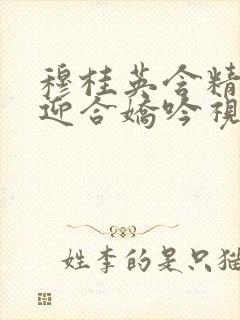 穆桂英含精
迎合娇吟视
姓李的是只猫